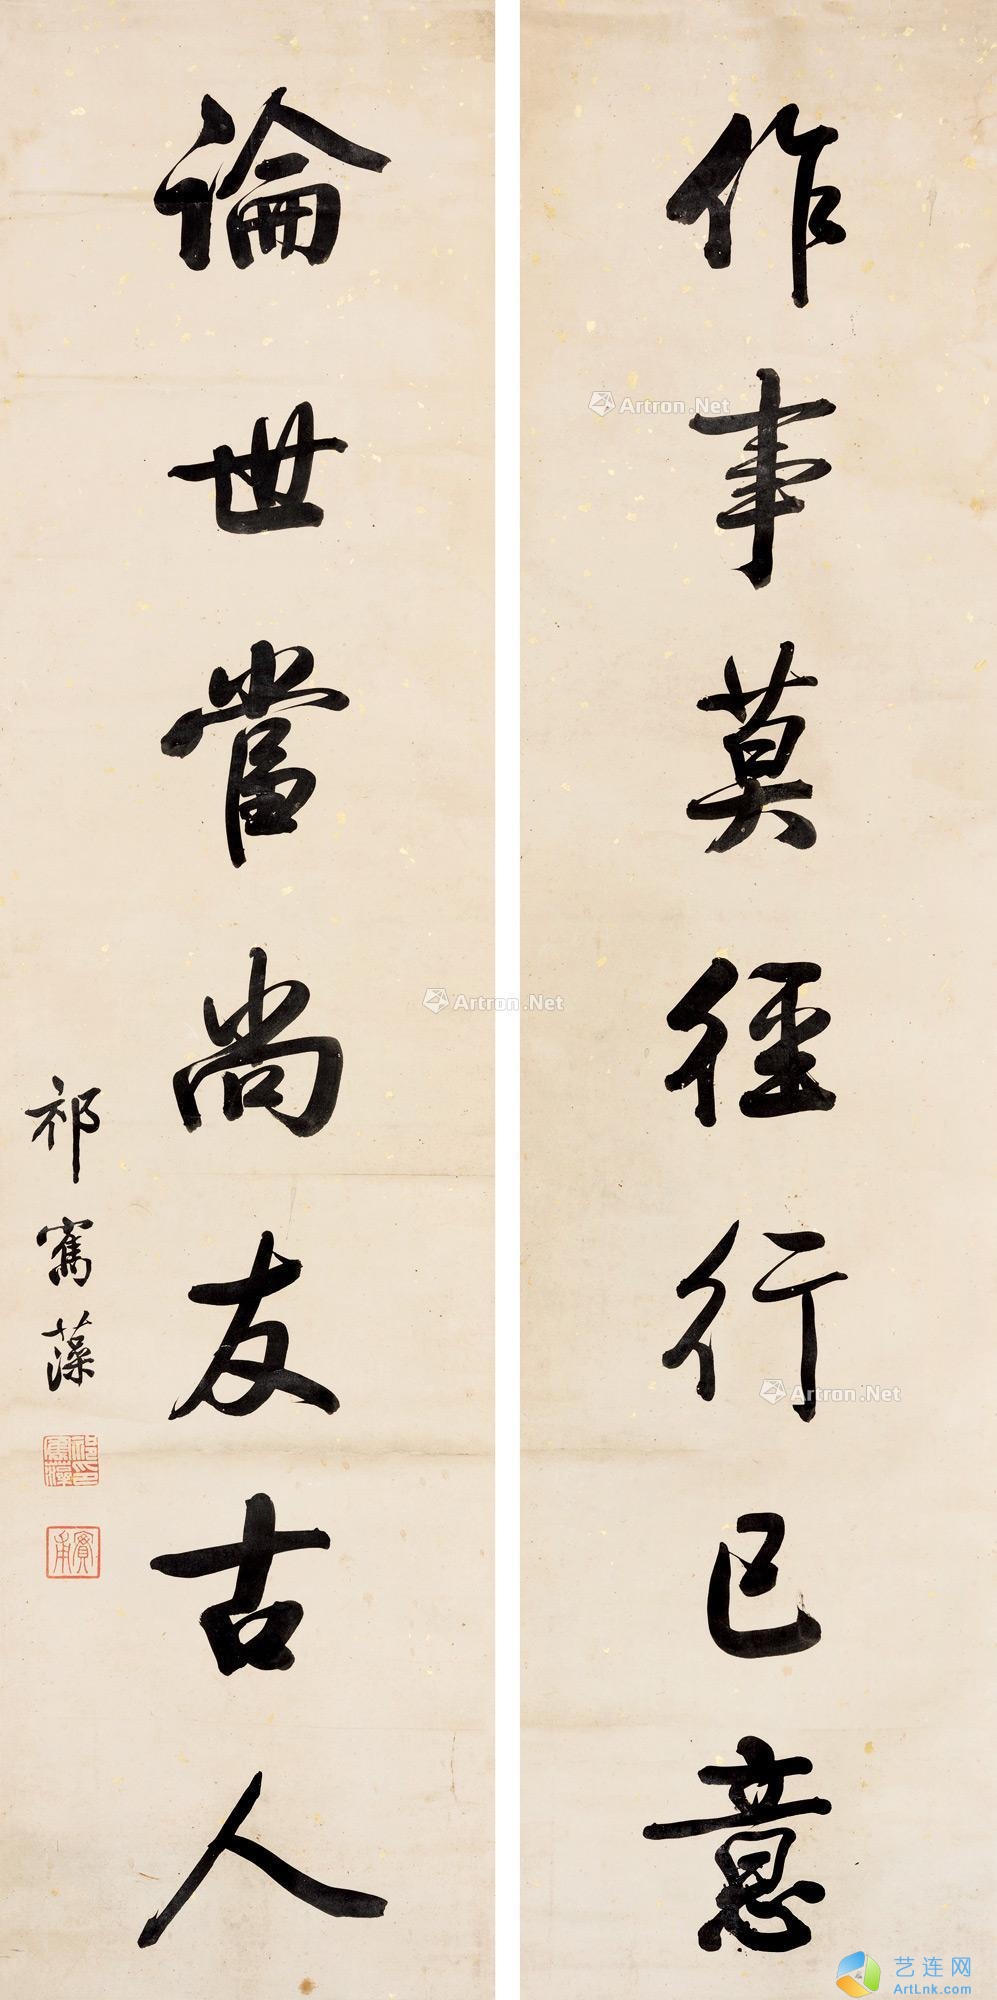 作事莫徑行己意
論世當尚友古人
祁寯藻
祁寯藻印
實甫
Artron.Net
Artron.Net
Artron.Net
艺连网
ArtLnk.com